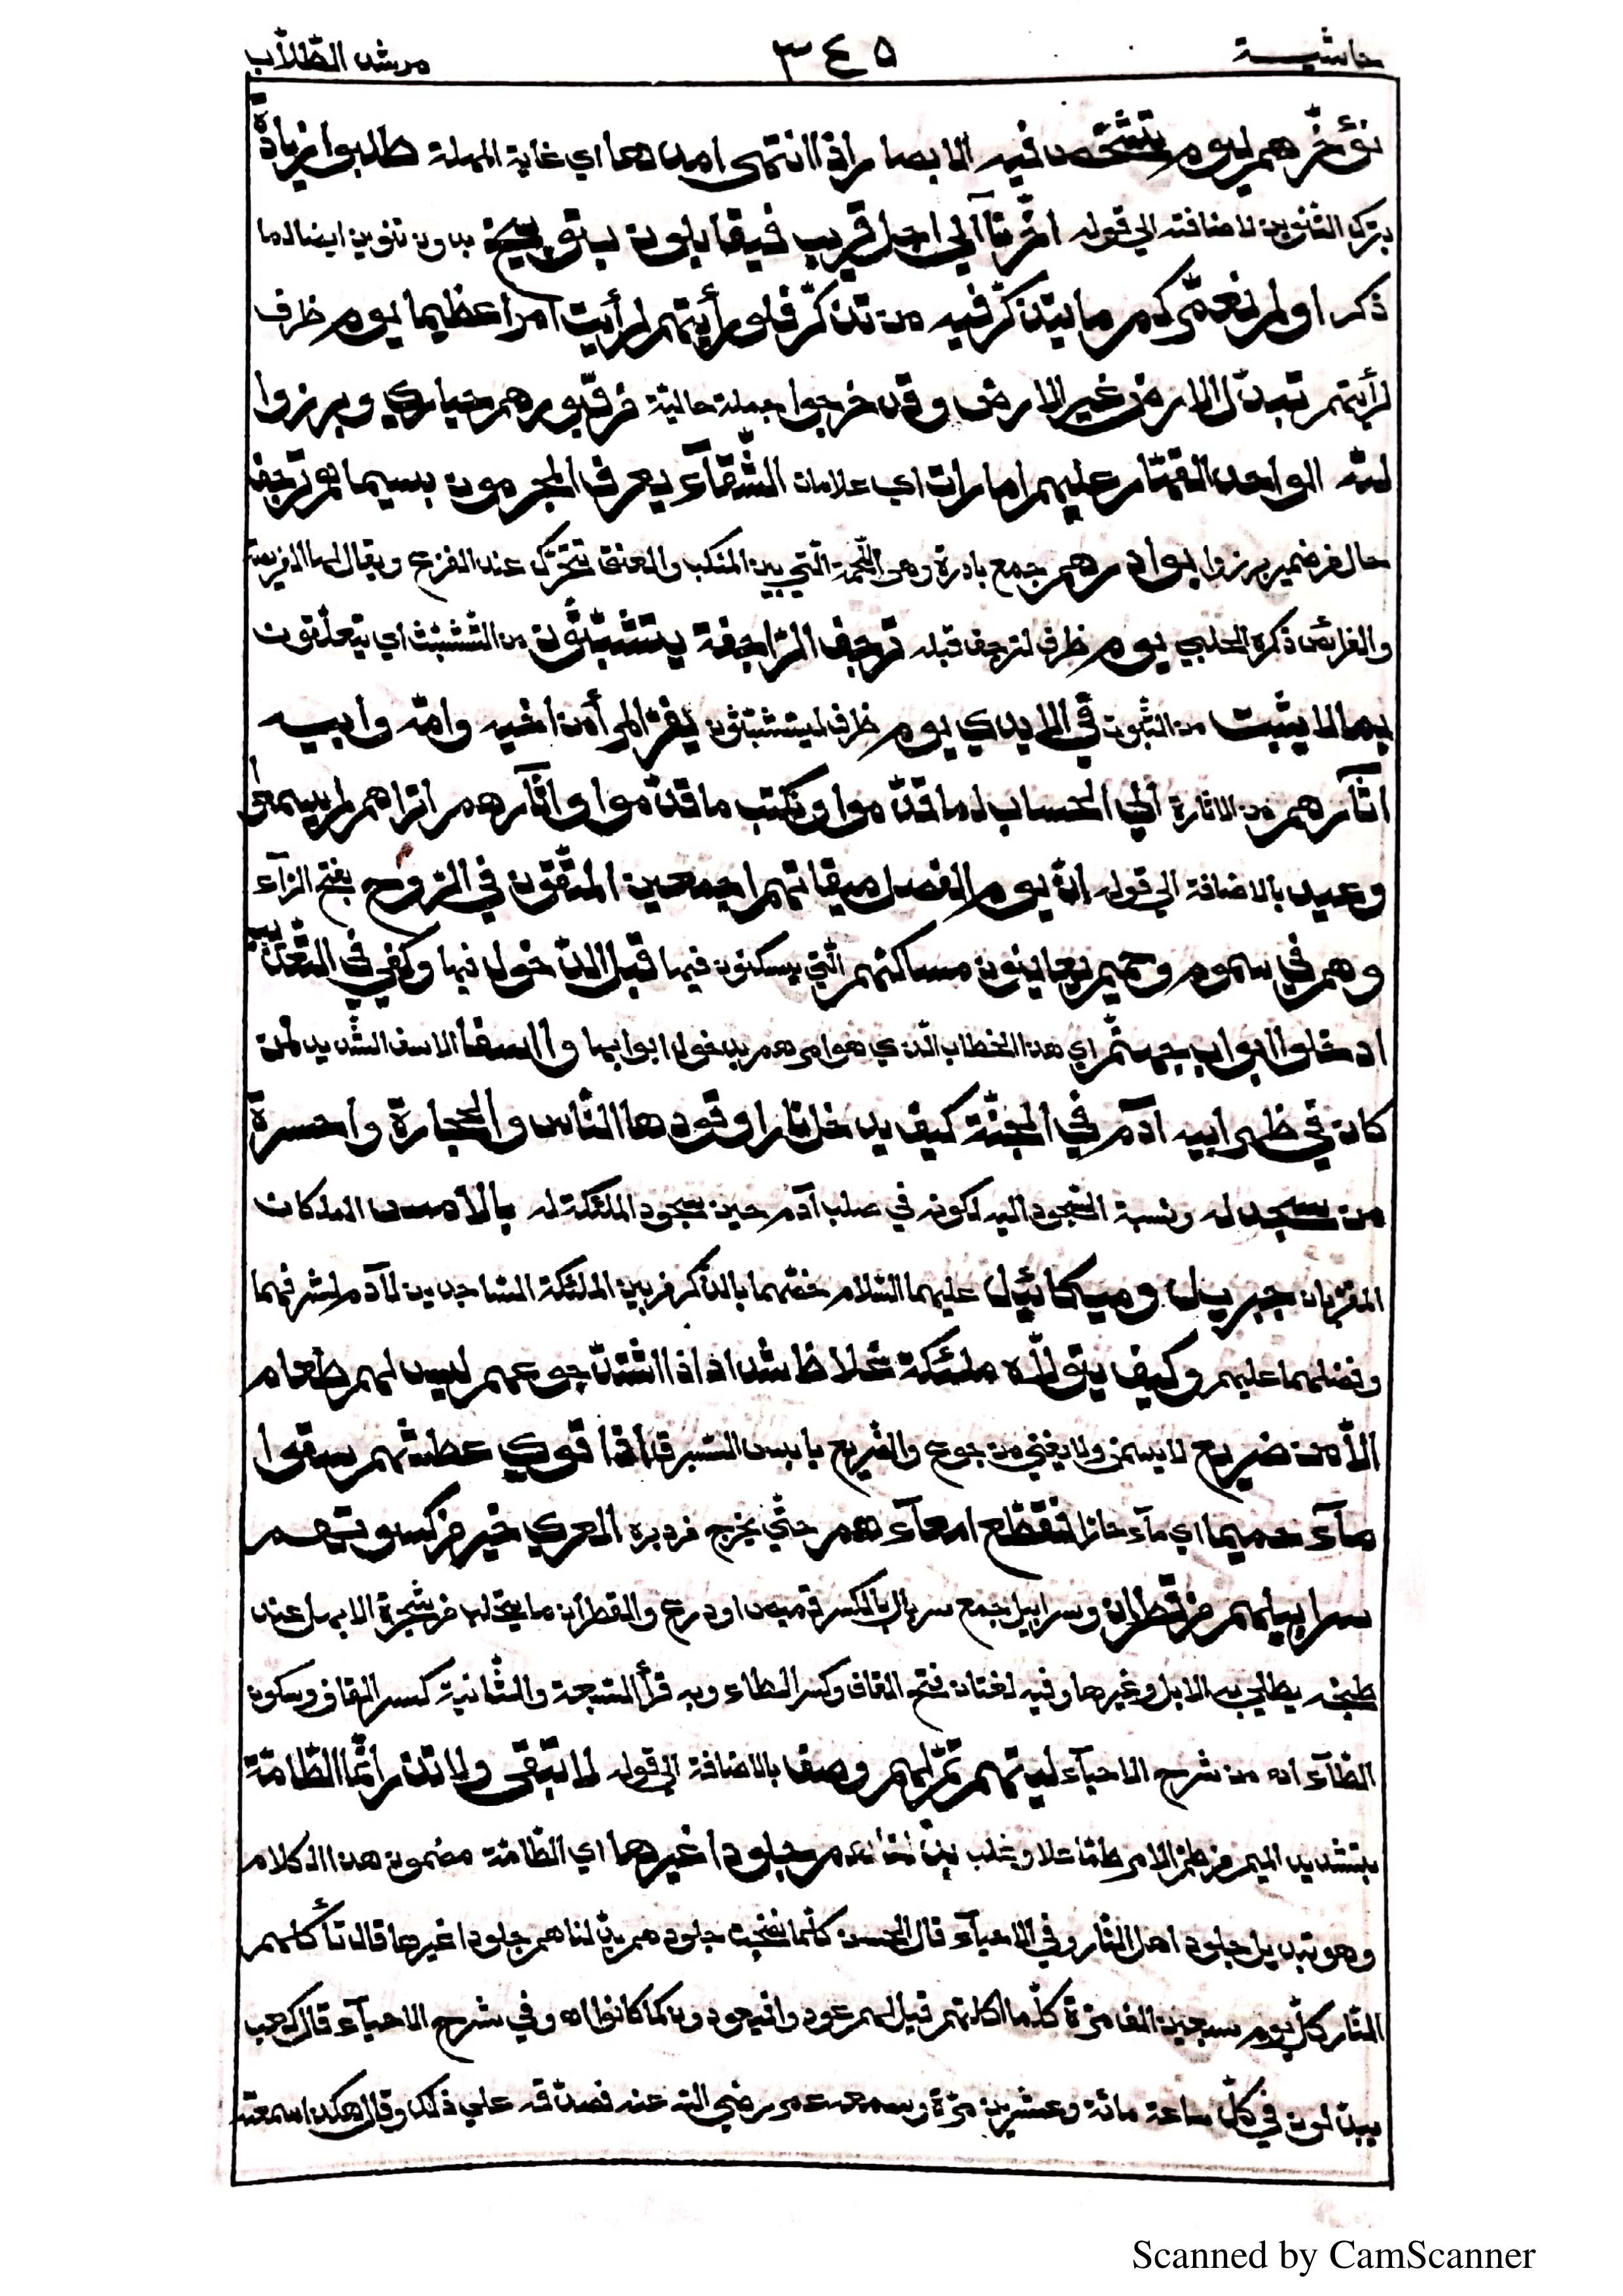 حاشية ٣٤٥ مرشد الطّلاّب
نؤخّرهم ليوم تتشخّص فيه الابصار اذا انتهى امدها اي غاية المهلة طلبوا زيادة
بترك التنوين لاضافته الي قوله اخّرنآ الي اجل قريب فيقابلون بتوبيخ بدون تنوين ايضا لما
ذكر اولم نعمّركم ما يتذكّر فيه من تذكّر فلو رأيتهم لرأيت امرا عظيما يوم ظرف
لرأيتهم تبدّل الارض غير الارض وقد خرجوا جملة حالية من قبورهم حياري وبرزوا
لله الواحد القهّار عليهم امارات اي علامات الشّقآء يعرف المجرمون بسيماهم ترجف
حال من ضمير برزوا بوادرهم جمع بادرة وهي اللّحمة الّتي بين المنكب والعنق تتحرّك عند الفزع ويقال لها الفريصة
والفرائص ذكره الحلبي يوم ظرف لترجف قبله ترجف الرّاجفة يتشبّثون من التّشبّث اي يتعلّقون
بما لا يثبت من الثّبوت في الايدي يوم ظرف ليتشبّثون يفرّ المرأ من اخيه وامّه وابيه
اثآرهم من الاثارة الي الحساب لما قدّموا ونكتب ما قدّموا وآثارهم اتراهم لم يسمعوا
وعيد بالاضافة الي قوله انّ يوم الفصل ميقاتهم اجمعين المتّقون في الرّوح بفتح الرّآء
وهم في سموم وحميم يعاينون مساكنهم الّتي يسكنون فيها قبل الدّخول فيها وكفي في التّعذيب
ادخلوا ابواب جهنّم اي هذا الخطاب الّذي هو امرهم بدخول ابوابها وااسفا الاسف الشّديد لمن
كان في ظهر ابيه آدم في الجنّة كيف يدخل نارا وقودها النّاس والحجارة واحسرة
من سجد له ونسبة السّجود اليه لكونه في صلب آدم حين سجود الملئكة له بالامس الملكان
المقرّبان جبريل وميكائيل عليهما السّلام خصّهما بالذّكر من بين الملئكة السّاجدين لآدم لشرفهما
وفضلهما عليهم وكيف يتولاّه ملئكة غلاظ شداد اذا اشتدّ جوعهم ليس لهم طعام
الاّ من ضريع لا يسمن ولا يغني من جوع والضّريع يابس الشّبرق اذا قوي عطشهم سقوا
مآء حميما اي مآء حارّا فتقطّع امعآءهم حتّي يخرج من دبره المعري خير من كسوتهم
سرابيلهم من قطران وسرابيل جمع سربال بالكسر قميص او درع والقطران ما يتحلّب من شجرة الابهل عند
طبخه يطلي به الابل وغيرها وفيه لغتان فتح القاف وكسر الطاء وبه قرأ السّبعة والثّانية كسر القاف وسكون
الطّآء اه من شرح الاحيآء ليتهم تمرّ لهم وصف بالاضافة الي قوله لا تبقي ولا تذر انّما الطّامّة
بتشديد الميم من طمّ الامر طمّا علا وغلب بدّلناهم جلودا غيرها اي الطّامّة مضمون هذا الكلام
وهو تبديل جلود اهل النّار وفي الاحيآء قال الحسن كلّما نضجت جلودهم بدّلناهم جلودا غيرها قال تأكلهم
النّار كلّ يوم سبعين الف مرّة كلّما اكلتهم قيل لهم عودوا فيعودون كما كانوا اه وفي شرح الاحيآء قال كعب
يبدّلون في كلّ ساعة مائة وعشرين مرّة وسمعه عمر رضي الله عنه فصدّقه علي ذلك وقال هكذا سمعته
Scanned by CamScanner